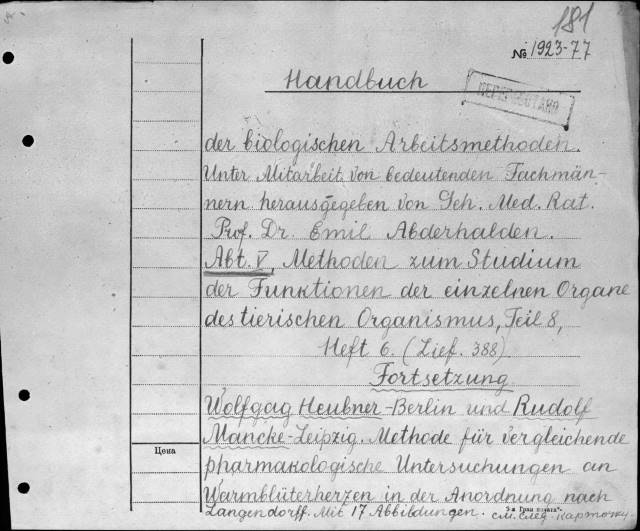 181
№ 1923-77
Handbuch
ПЕРЕУЧТЕНО
der biologischen Arbeitsmethoden.
Unter Mitarbeit von bedeutenden Fachmän-
nern herausgegeben von Geh. Med. Rat.
Prof. Dr. Emil Abderhalden.
Abt. V, Methoden zum Studium
der Funktionen der einzelnen Organe
des tierischen Organismus, Teil 8,
Heft 6. (Lief. 388)
Fortsetzung
Wolfgag Heubner-Berlin und Rudolf
Mancke-Leipzig. Methode für vergleichende
Цена
pharmakologische Untersuchungen an
Warmblüterherzen in der Anordnung nach
Langendorff. Mit 17 Abbildungen. см. след. карточку